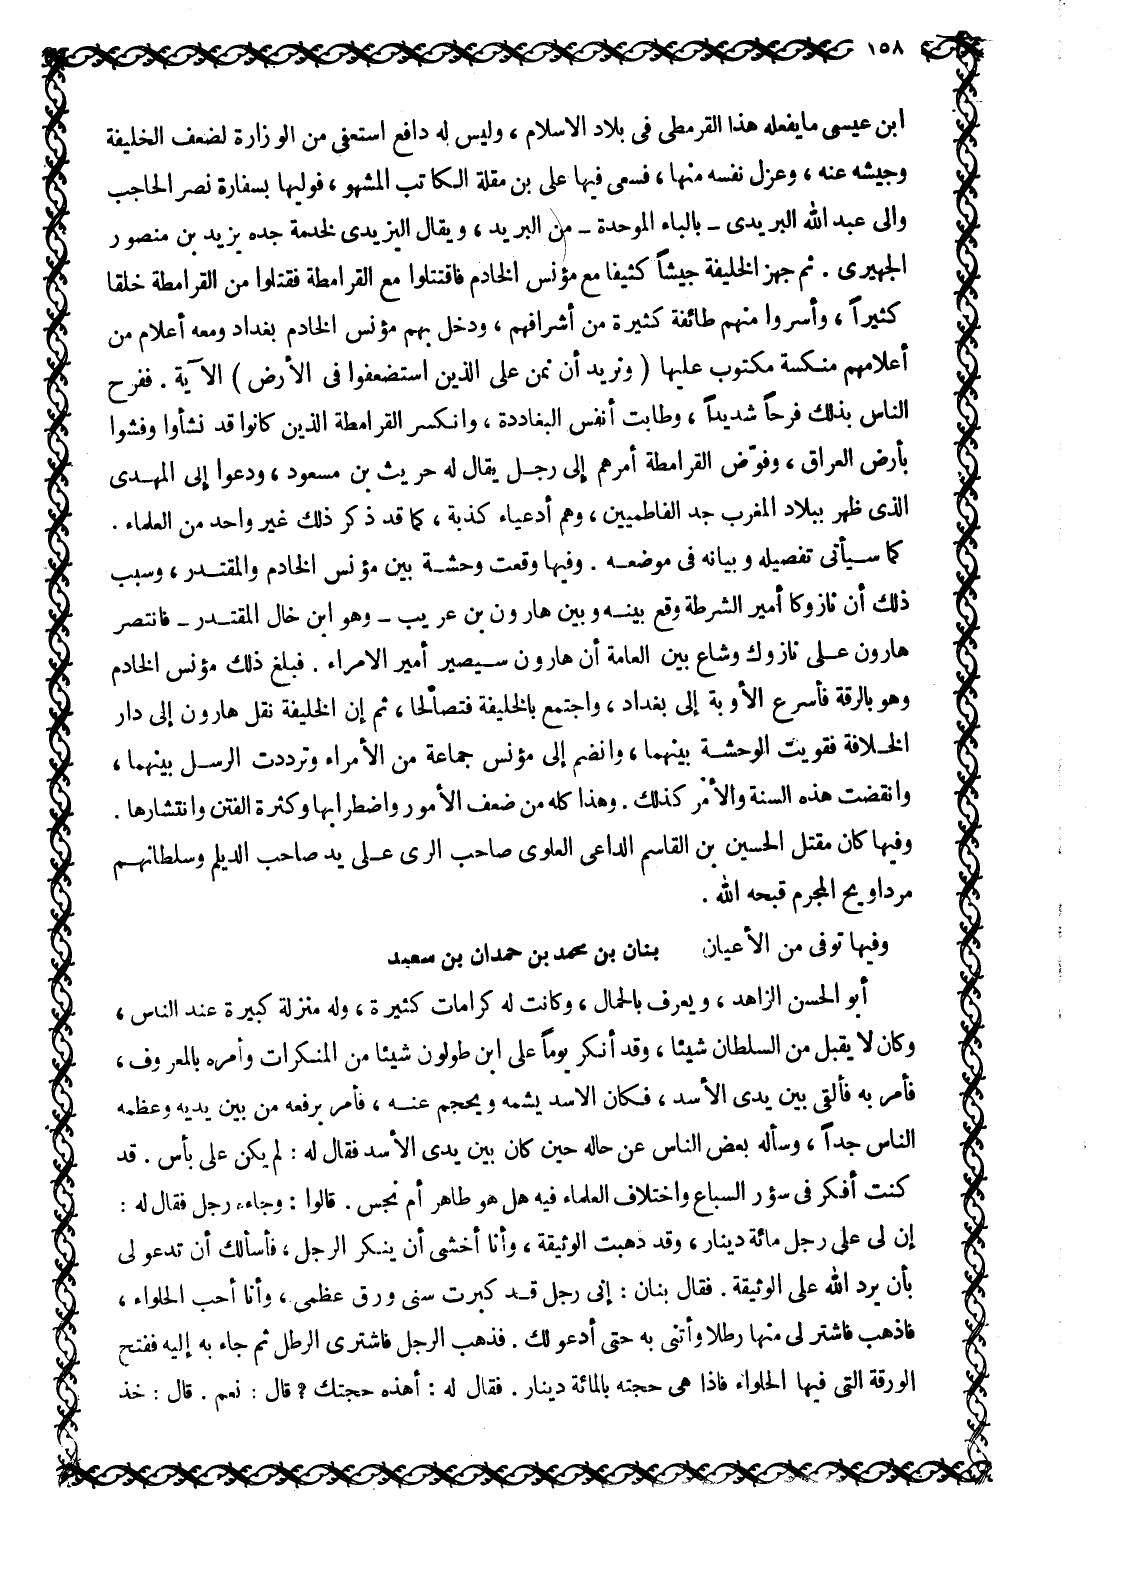 ١٥٨
ابن عيسى مايفعله هذا القرمطى فى بلاد الاسلام ، وليس له دافع استعفى من الوزارة لضعف الخليفة
وجيشه عنه ، وعزل نفسه منها ، فسعى فيها على بن مقلة الكاتب المشهو ، فوليها بسفارة نصر الحاجب
والى عبد الله البريدى ــ بالباء الموحدة ــ من البريد ، ويقال اليزيدى لخدمة جده يزيد بن منصور
الجهيرى . ثم جهز الخليفة جيشاً كثيفا مع مؤنس الخادم فاقتتلوا مع القرامطة فقتلوا من القرامطة خلقا
كثيراً ، وأسروا منهم طائفة كثيرة من أشرافهم ، ودخل بهم مؤنس الخادم بغداد ومعه أعلام من
أعلامهم منكسة مكتوب عليها ( ونريد أن نمن على الذين استضعفوا فى الأرض ) الآية . ففرح
الناس بذلك فرحاً شديداً ، وطابت أنفس البغاددة ، وانكسر القرامطة الذين كانوا قد نشأوا وفشوا
بأرض العراق ، وفوّض القرامطة أمرهم إلى رجل يقال له حريث بن مسعود ، ودعوا إلى المهدى
الذى ظهر ببلاد المغرب جد الفاطميين ، وهم أدعياء كذبة ، كما قد ذكر ذلك غير واحد من العلماء .
كما سيأتى تفصيله وبيانه فى موضعه . وفيها وقعت وحشة بين مؤنس الخادم والمقتدر ، وسبب
ذلك أن نازوكا أمير الشرطة وقع بينه وبين هارون بن عريب ــ وهو ابن خال المقتدر ــ فانتصر
هارون على نازوك وشاع بين العامة أن هارون سيصير أمير الامراء . فبلغ ذلك مؤنس الخادم
وهو بالرقة فأسرع الأوبة إلى بغداد ، واجتمع بالخليفة فتصالحا ، ثم إن الخليفة نقل هارون إلى دار
الخلافة فقويت الوحشة بينهما ، وانضم إلى مؤنس جماعة من الأمراء وترددت الرسل بينهما ،
وانقضت هذه السنة والأمر كذلك . وهذا كله من ضعف الأمور واضطرابها وكثرة الفتن وانتشارها .
وفيها كان مقتل الحسين بن القاسم الداعى العلوى صاحب الرى على يد صاحب الديلم وسلطانهم
مرداويح المجرم قبحه الله .
وفيها توفى من الأعيان بنان بن محمد بن حمدان بن سعيد
أبو الحسن الزاهد ، ويعرف بالحمال ، وكانت له كرامات كثيرة ، وله منزلة كبيرة عند الناس ،
وكان لا يقبل من السلطان شيئا ، وقد أنكر يوماً على ابن طولون شيئا من المنكرات وأمره بالمعروف ،
فأمر به فألقى بين يدى الأسد ، فكان الاسد يشمه ويحجم عنه ، فأمر برفعه من بين يديه وعظمه
الناس جداً ، وسأله بعض الناس عن حاله حين كان بين يدى الأسد فقال له : لم يكن على بأس . قد
كنت أفكر فى سؤر السباع واختلاف العلماء فيه هل هو طاهر أم نجس . قالوا : وجاءه رجل فقال له :
إن لى على رجل مائة دينار ، وقد ذهبت الوثيقة ، وأنا أخشى أن ينكر الرجل ، فأسألك أن تدعو لى
بأن يرد الله على الوثيقة . فقال بنان : إنى رجل قد كبرت سنى ورق عظمى ، وأنا أحب الحلواء ،
فاذهب فاشتر لى منها رطلا وأتنى به حتى أدعو لك . فذهب الرجل فاشترى الرطل ثم جاء به إليه ففتح
الورقة التى فيها الحلواء فاذا هى حجته بالمائة دينار . فقال له : أهذه حجتك ? قال : نعم . قال : خذ